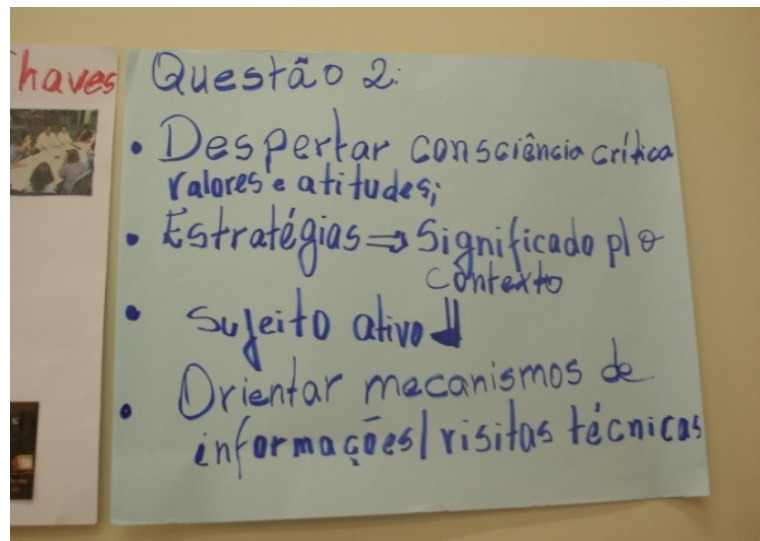 haves
Questão 2:
• Despertar consciência crítica
valores e atitudes;
• Estratégias ⇒ Significado p/ o
contexto
• Sujeito ativo
• Orientar mecanismos de
informações/visitas técnicas